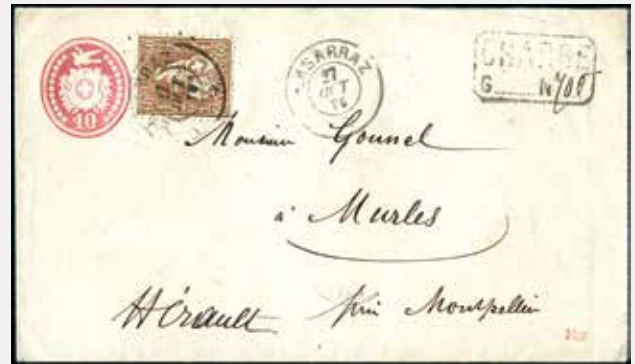 10
LASARRAZ
27
OCT
CHARGÉ
G N 708
Monsieur Gounel
à Murles
Hérault près Montpellier